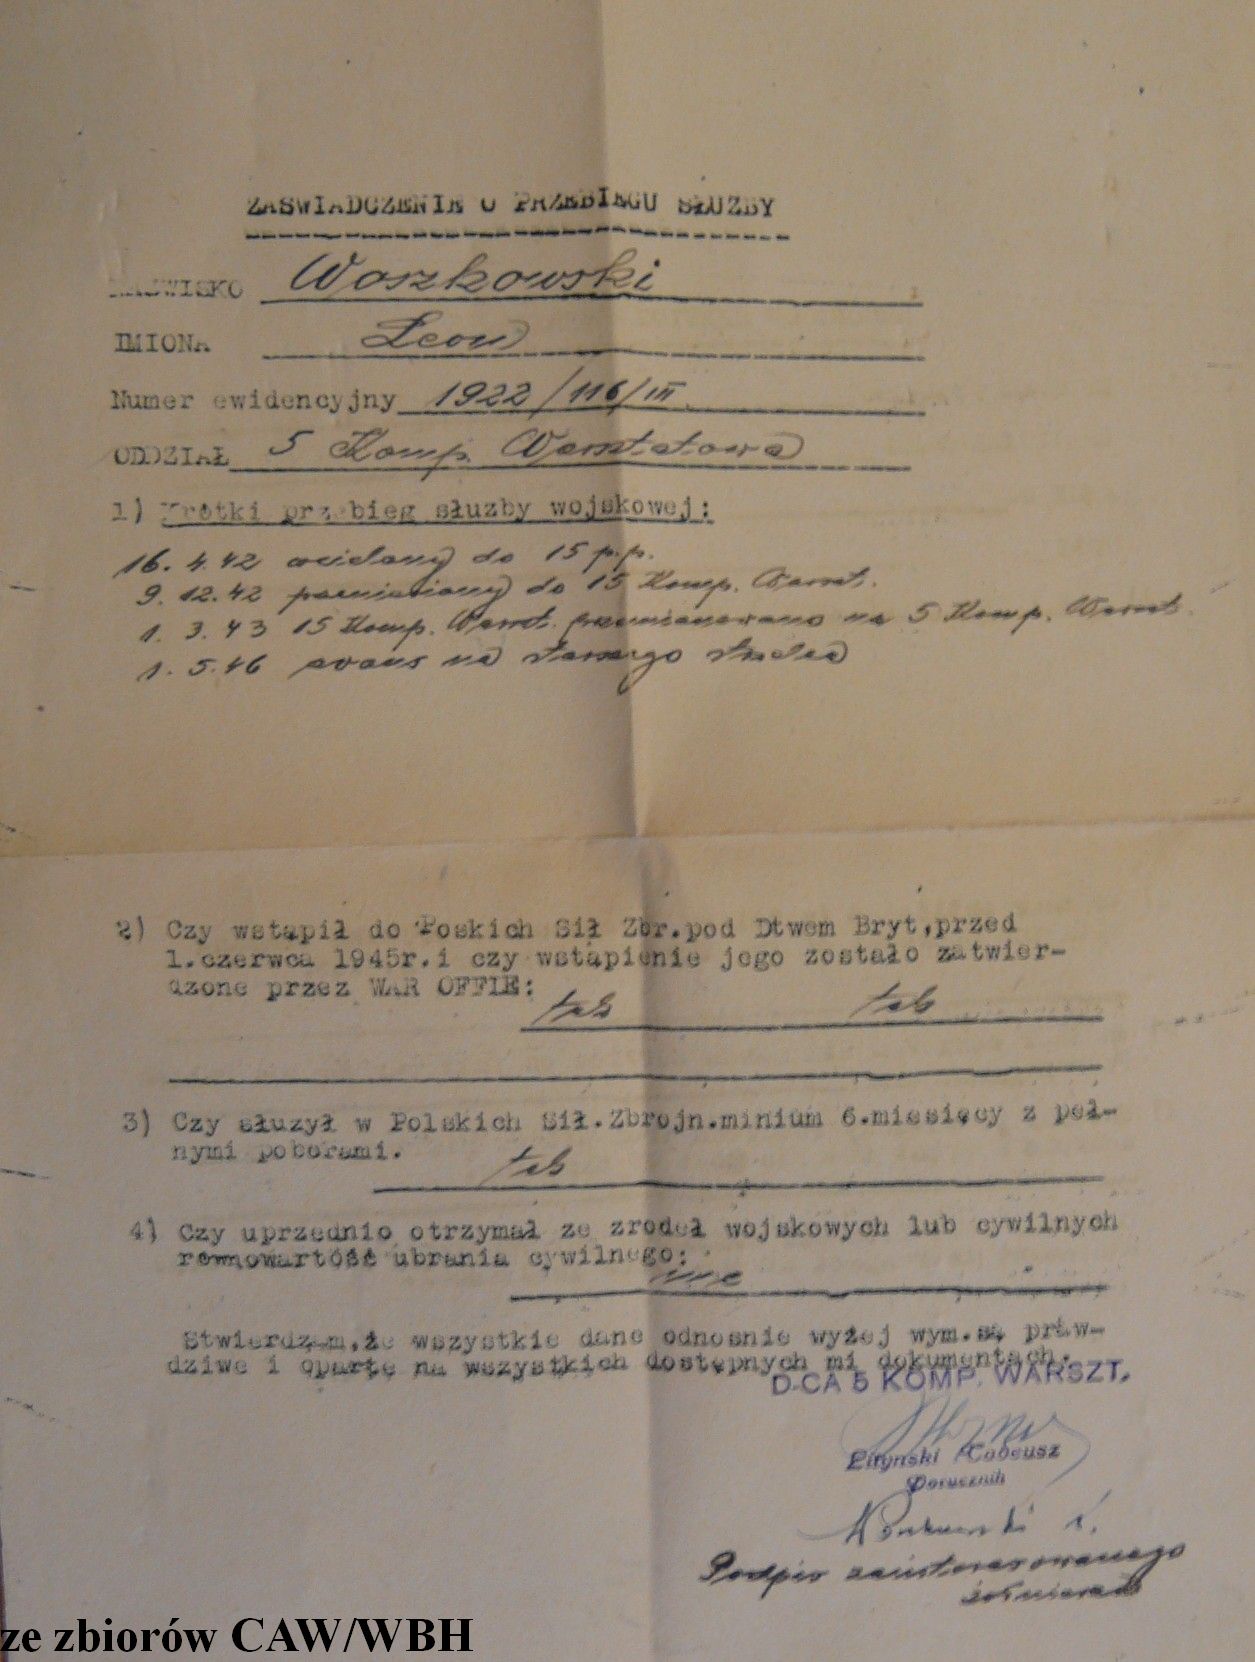 ZAŚWIADCZENIE O PRZEBIEGU SŁUŻBY
NAZWISKO Woszkowski
IMIONA Leon
Numer ewidencyjny 1922/116/III
ODDZIAŁ 5 Komp. Warsztatowa
1) Krótki przebieg służby wojskowej:
16. 4. 42 wcielony do 15 p.p.
9. 12. 42 do 15 Komp. Warszt.
1. 3. 43 15 Komp. Warszt. przemianowano na 5 Komp. Warszt.
1. 5. 46 awans na starszego strzelca
2) Czy wstąpił do Poskich Sił Zbr.pod Dtwem Bryt,przed
1.czerwca 1945r.i czy wstąpienie jego zostało zatwier-
dzone przez WAR OFFIE:
tak tak
3) Czy słuzył w Polskich Sił.Zbrojn.minium 6.miesięcy z peł-
nymi poborami.
tak
4) Czy uprzednio otrzymał ze zrodeł wojskowych lub cywilnych
rownowartość ubrania cywilnego:
nie
Stwierdzam,że wszystkie dane odnosnie wyżej wym.są praw-
dziwe i oparte na wszystkich dostępnych mi dokumentach.
D-CA 5 KOMP. WARSZT.
Tadeusz
Porucznik
Podpis zainteresowanego
żołnierza
ze zbiorów CAW/WBH